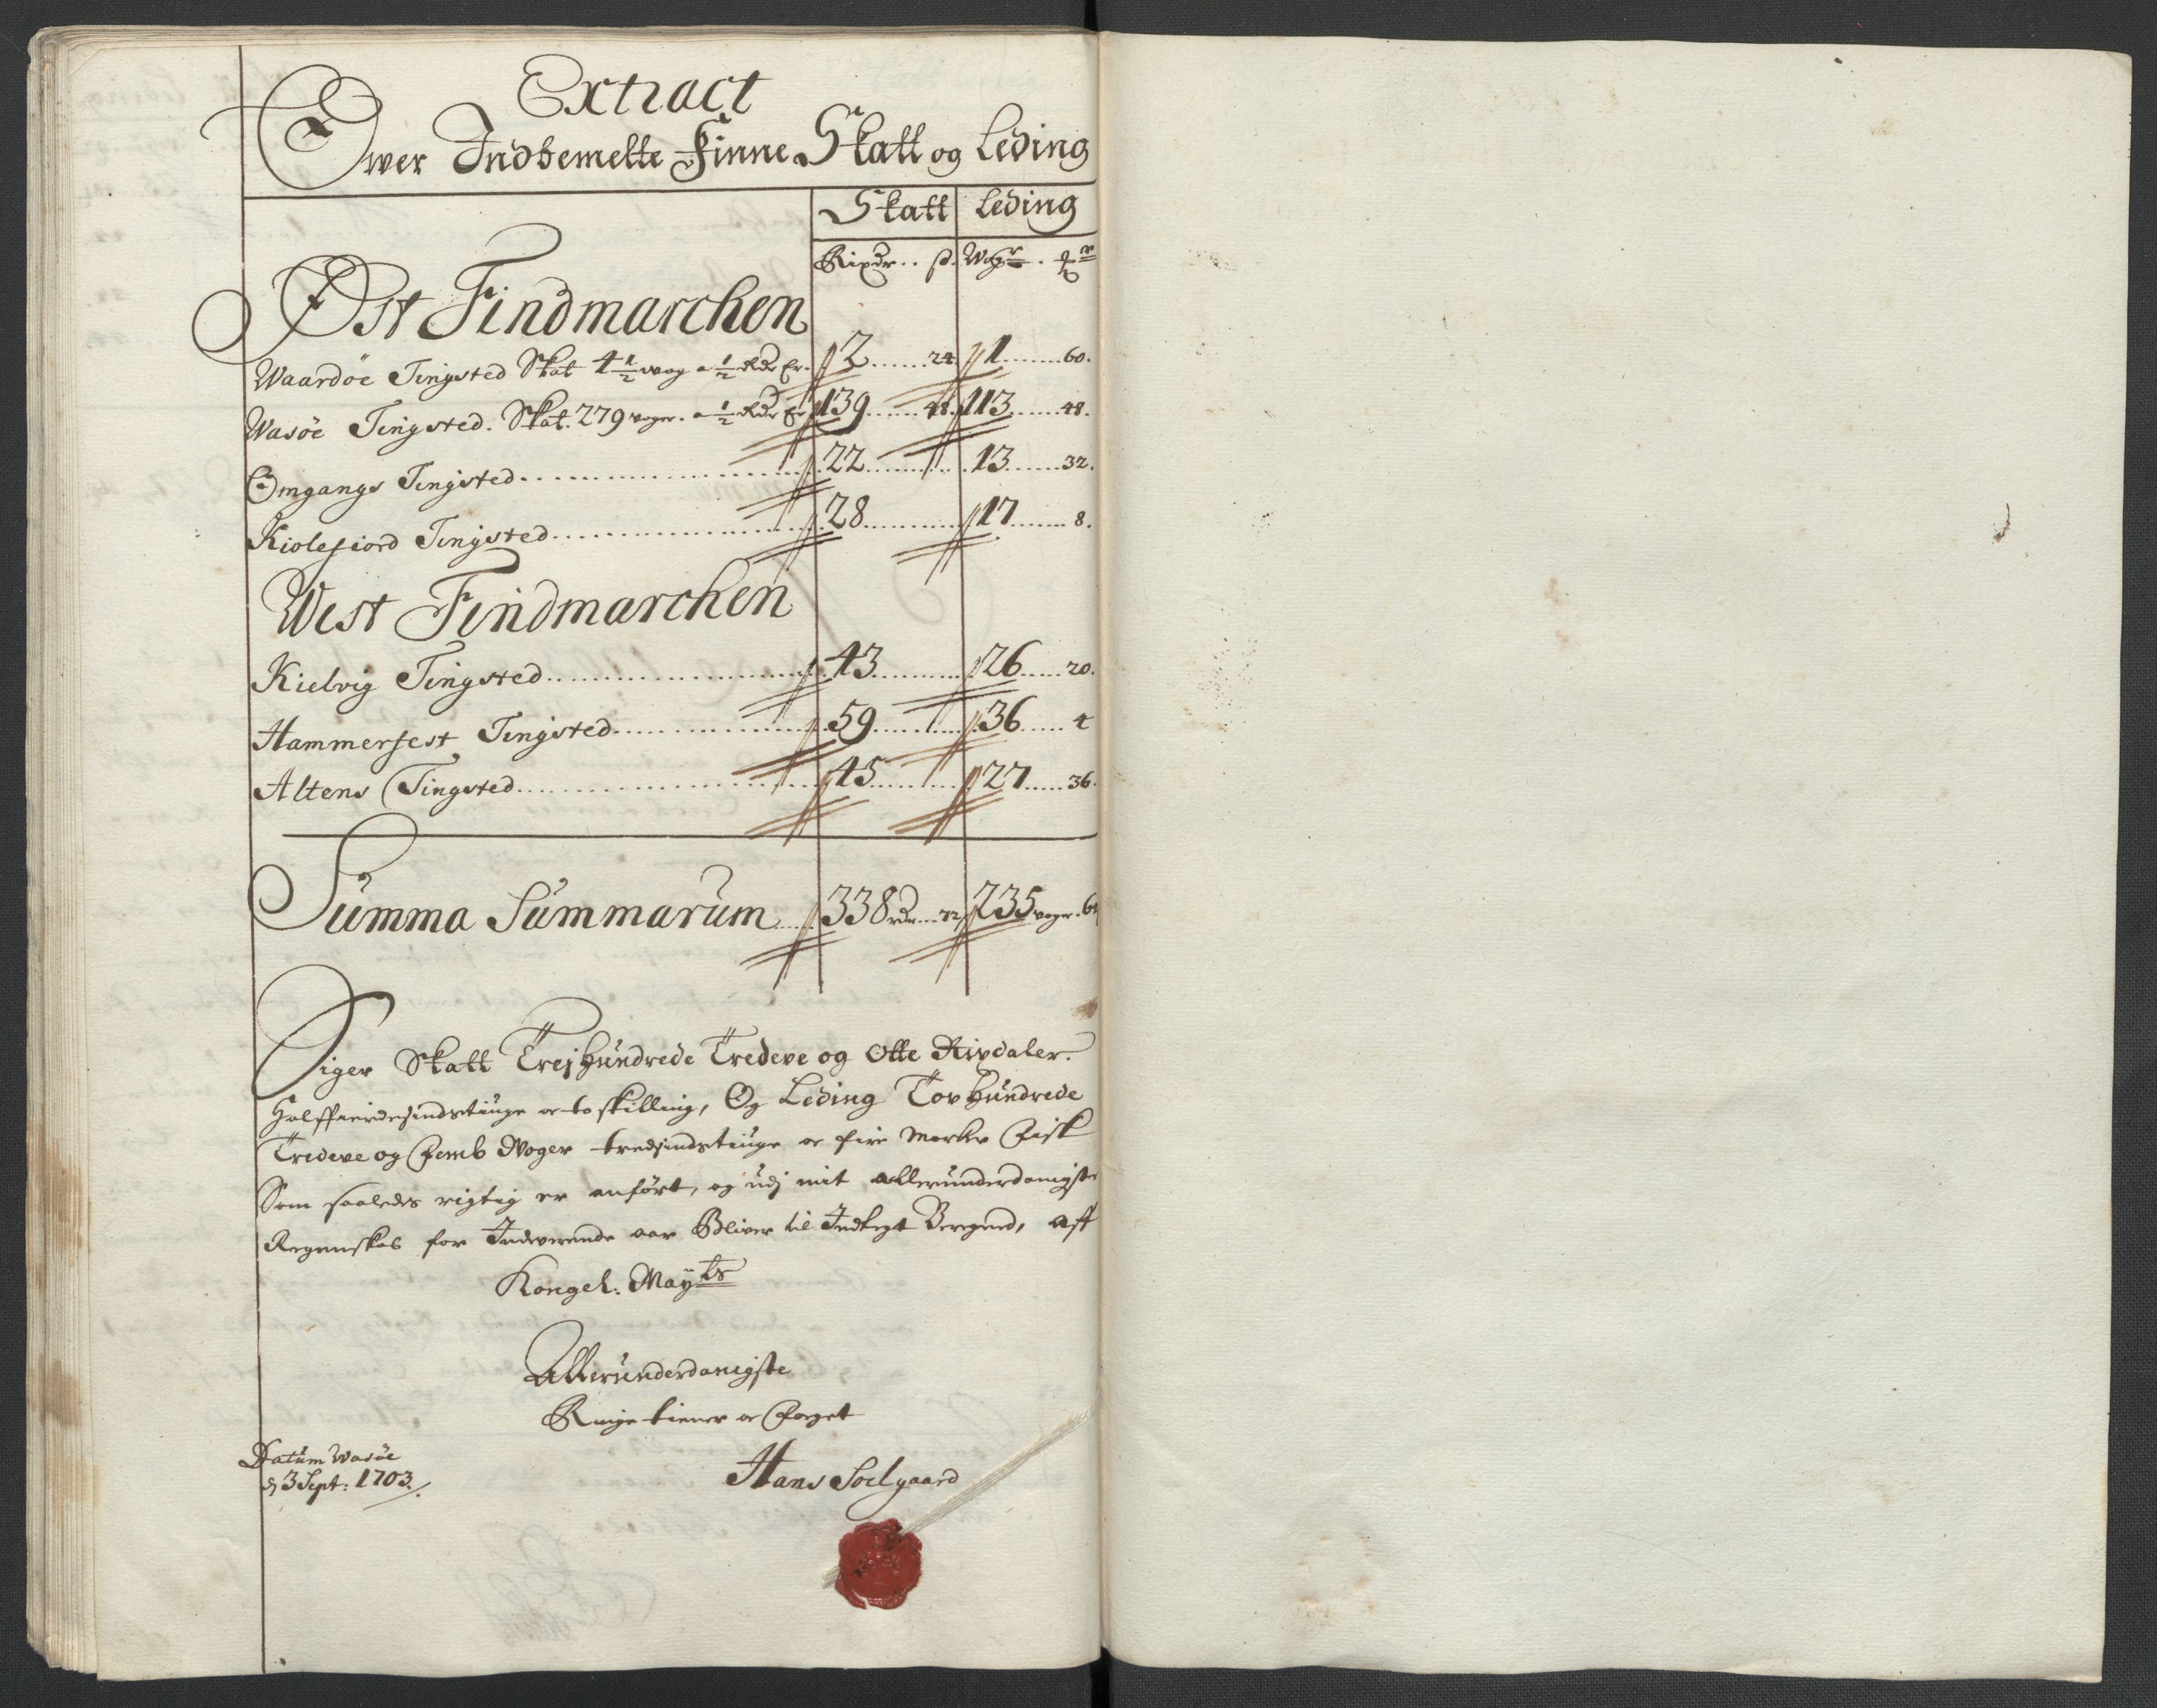 Extract
Ower Indbemelte Finne Skatt og Leding
Skatt Leding
Rixdr.. s. Wogr.
Øst Findmarchen
Waardøe Tingsted Skat 4 1/2 wog a 1/2 Rdr Er. 2 ...... 24 1 ...... 60.
Wasøe Tingsted. Skat. 279 woger. a 1/2 Rdr Er 139 ...... 48. 113 ...... 48.
Omgangs Tingsted .......... 22 .......... 13 ...... 32.
Kiolefiord Tingsted .......... 28 .......... 17 ...... 8.
West Findmarchen
Kielvig Tingsted .......... 43 .......... 26 ...... 20.
Hammerfest Tingsted .......... 59 .......... 36 ...... 4
Altens Tingsted .......... 45 .......... 27 ...... 36.
Summa Summarum ..... 338 rdr ... 72 235 woger. 64
Siger Skatt Trej Hundrede Tredeve og Otte Rixdaler.
Halffierdesindstiuge oc to skilling, Og Leding Tov Hundrede
Tredeve og Femb Woger tredsindstiuge oc fire Merker Fisk
Som saaledes rigtig er anført, og udj mit allerunderdanigste
Regenskab for Indeverende aar Bliver til Indtegt Beregned, aff
Kongel: Mayts
Allerunderdanigste
Ringe tiener oc Foget
Hans Soelgaard
Datum Wasøe
d 3 Sept: 1703.